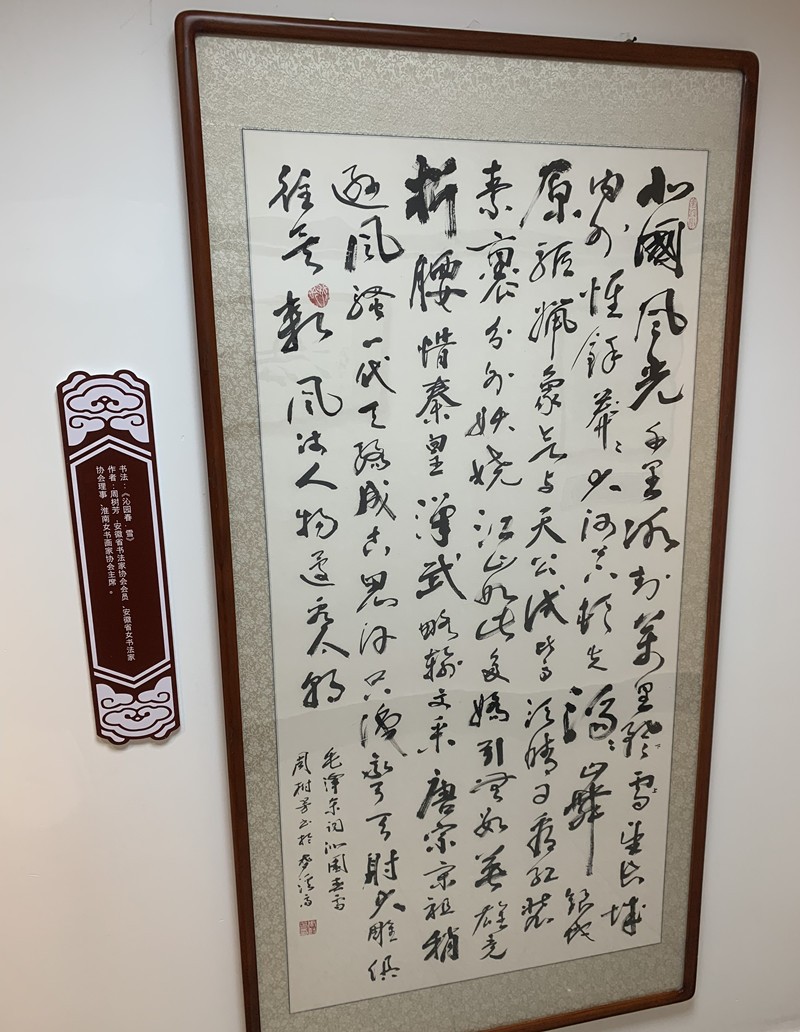 北國风光千里冰封萬里雪飘望长城
内外惟餘莽莽大河上下顿失滔滔山舞银蛇
原驰蜡象欲与天公试比高须晴日看红装
素裹分外妖娆江山如此多嬌引無数英雄竞
折腰惜秦皇漢武略输文采唐宗宋祖稍
逊风骚一代天骄成吉思汗只识弯弓射大雕俱
往矣数风流人物还看今朝
毛泽东词沁園春雪
周树芳书於
书法：《沁园春·雪》
作者：周树芳，安徽省书法家协会会员，安徽省女书法家
协会理事，淮南女书画家协会主席。